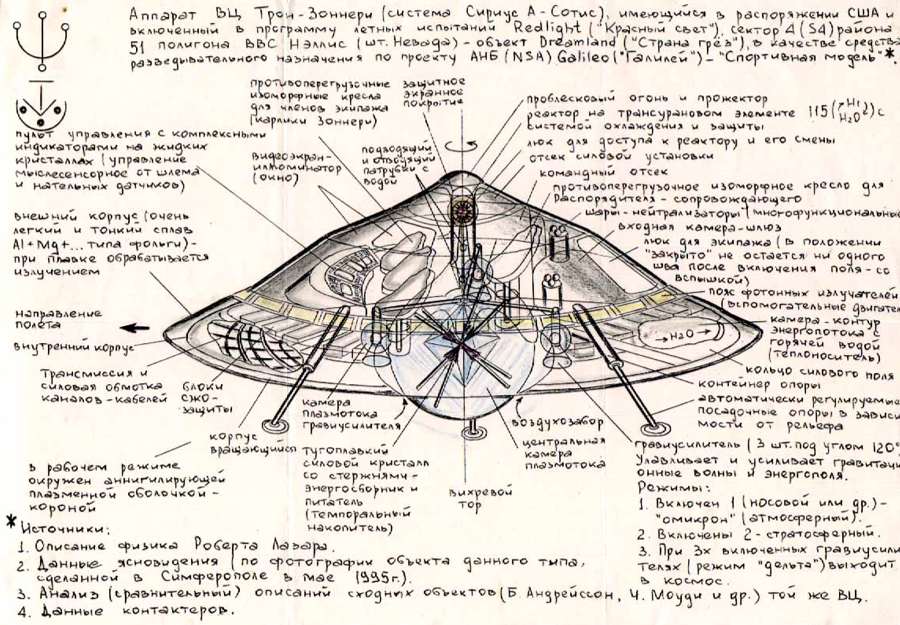 Аппарат ВЦ Трон-Зоннери (система Сириус А-Сотис), имеющийся в распоряжении США и
включенный в программу летных испытаний Redlight ("Красный свет"), сектор 4 (S4) района
51 полигона ВВС Нэллис (шт. Невада) - объект Dreamland ("Страна грёз"), в качестве средства
разведывательного назначения по проекту АНБ (NSA) Galileo ("Галилей") - "Спортивная модель"*.
противоперегрузочные
изоморфные кресла
для членов экипажа
(карлики Зоннери)
защитное
экранное
покрытие
пульт управления с комплексными
индикаторами на жидких
кристаллах (управление
мыслесенсорное от шлема
и нательных датчиков)
видеоэкран-
иллюминатор
(окно)
подводящий
и отводящий
патрубки с
водой
внешний корпус (очень
легкий и тонкий сплав
Al+Mg+... типа фольги) -
при плавке обрабатывается
излучением
направление
полёта
внутренний корпус
Трансмиссия и
силовая обмотка
каналов-кабелей
блоки
СЖО-
защиты
корпус
вращающийся
в рабочем режиме
окружен аннигилирующей
плазменной оболочкой-
короной
камера
плазмотока
гравиусилителя
тугоплавкий
силовой кристалл
со стержнями-
энергосборник и
питатель
(темпоральный
накопитель)
вихревой
тор
воздухозабор
центральная
камера
плазмотока
проблесковый огонь и прожектор
реактор на трансурановом элементе 115 с
системой охлаждения и защиты
люк для доступа к реактору и его смены
отсек силовой установки
командный отсек
противоперегрузочное изоморфное кресло для
Распорядителя - сопровождающего
шары-нейтрализаторы (многофункциональные
входная камера-шлюз
люк для экипажа (в положении
"закрыто" не остается ни одного
шва после включения поля - со
вспышкой)
пояс фотонных излучателей
(вспомогательные двигател
камера-контур
энергопотока с
горячей водой
(теплоноситель)
H₂O
кольцо силового поля
контейнер опоры
автоматически регулируемые
посадочные опоры в зависи
мости от рельефа
гравиусилитель (3 шт. под углом 120°
Улавливает и усиливает гравитаци
онные волны и энергополя.
Режимы:
1. Включен 1 (носовой или др.) -
"омикрон" (атмосферный).
2. Включены 2 - стратосферный.
3. При 3х включенных гравиусили
телях (режим "дельта") выходит
в космос.
* Источники:
1. Описание физика Роберта Лазара.
2. Данные ясновидения (по фотографии объекта данного типа,
сделанной в Симферополе в мае 1995г.).
3. Анализ (сравнительный) описаний сходных объектов (Б. Андрейссон, Ч. Моуди и др.) той же ВЦ.
4. Данные контактеров.